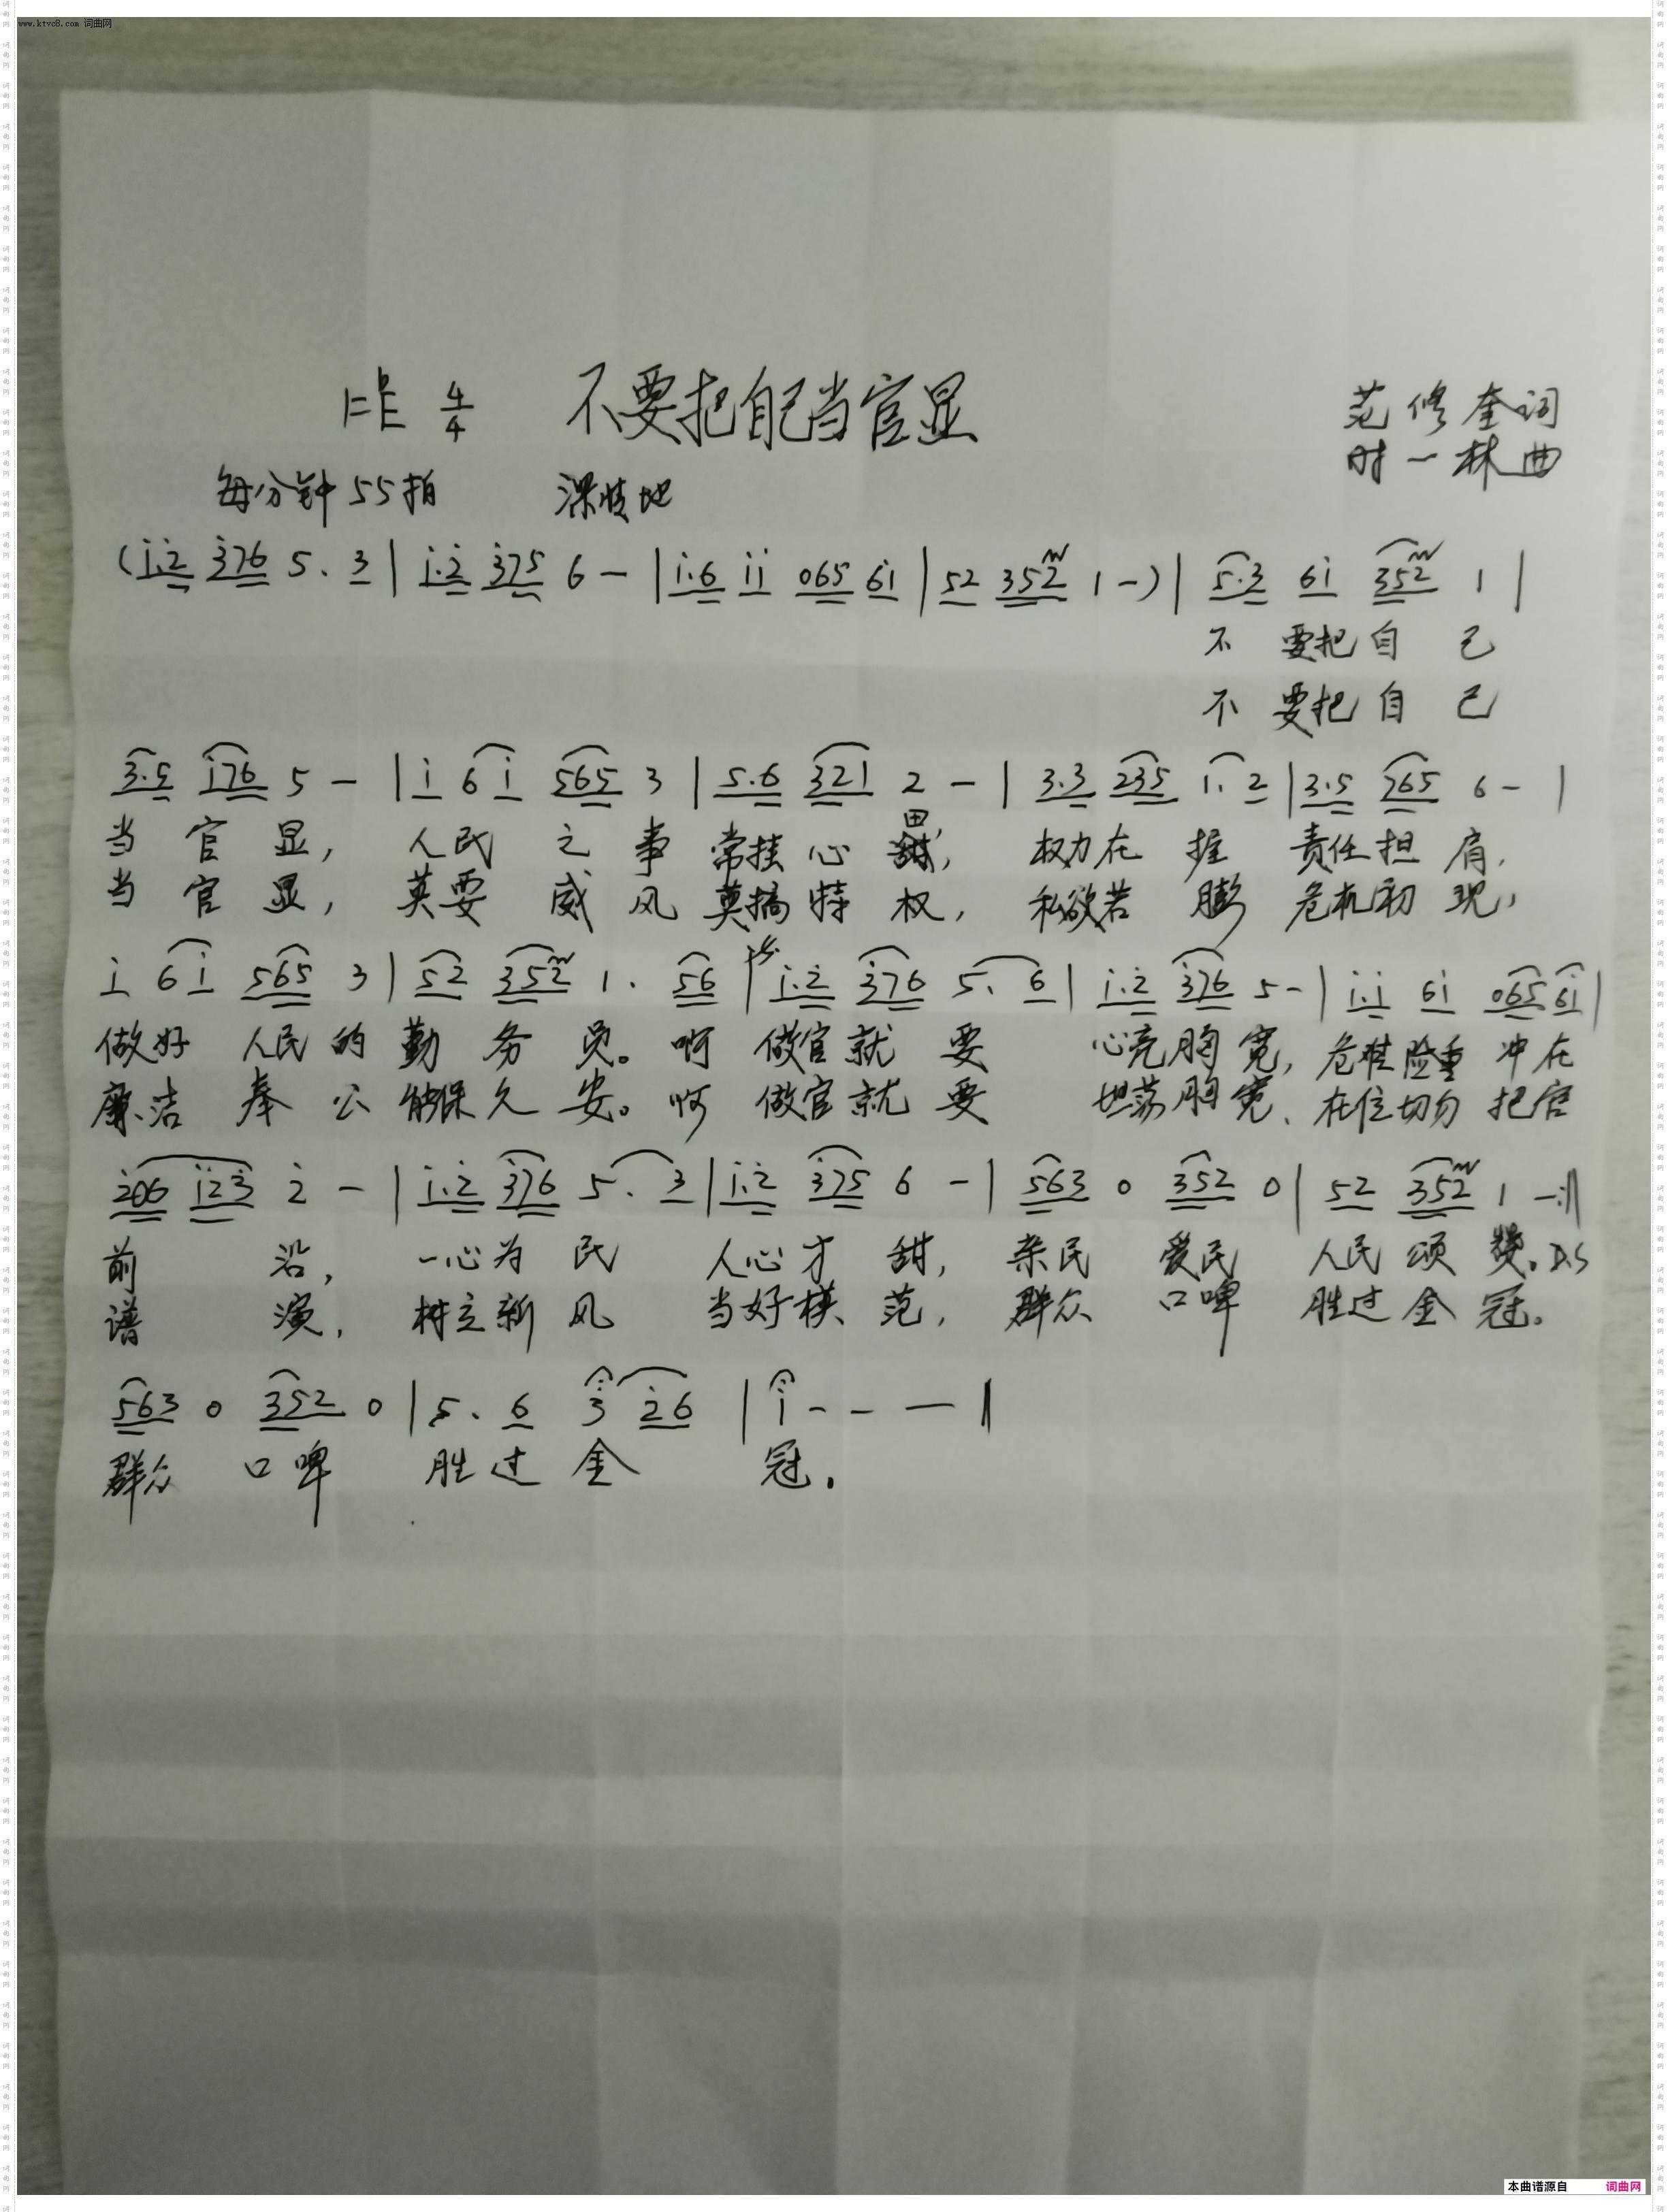 www.ktvc8.com 词曲网
1=♭E 4/4 不要把自己当官显 范修奎词
时一林曲
每分钟55拍 深情地
(i.2̇ 3̇76 5. 3 | i.2̇ 3̇75 6 — | i.6 ii 065 6i | 52 352 1 —) | 5.3 6i 352 1 |
不 要把 自 己
不 要把 自 己
3.5 i76 5 — | i 6 i 565 3 | 5.6 321 2 — | 3.3 235 1. 2 | 3.5 765 6 — |
田
当 官 显, 人民 之 事 常挂 心 , 权力在 握 责任担 肩,
当 官 显, 莫要 威 风 莫搞 特 权, 私欲若 膨 危机初 现,
i 6 i 565 3 | 52 352 1. 56 | i.2̇ 3̇76 5. 6 | i.2̇ 3̇76 5 — | i.i 6i 065 6i |
做好 人民 的 勤 务 员。 啊 做官就 要 心亮胸 宽, 危难险重 冲在
廉洁 奉 公 能保久 安。 啊 做官就 要 坦荡胸 宽, 在位切勿 把官
2̇06 i2̇3̇ 2̇ — | i.2̇ 3̇76 5. 3 | i.2̇ 3̇75 6 — | 563 0 352 0 | 52 352 1 — :|
前 沿, 一心为 民 人心才 甜, 亲民 爱民 人民 颂 赞。D.S
谱 演, 树立新 风 当好模 范, 群众 口啤 胜过 金 冠。
563 0 352 0 | 5. 6 3̇ 2̇6 | i — — — ‖
群众 口啤 胜 过 金 冠.
本曲谱源自 词曲网